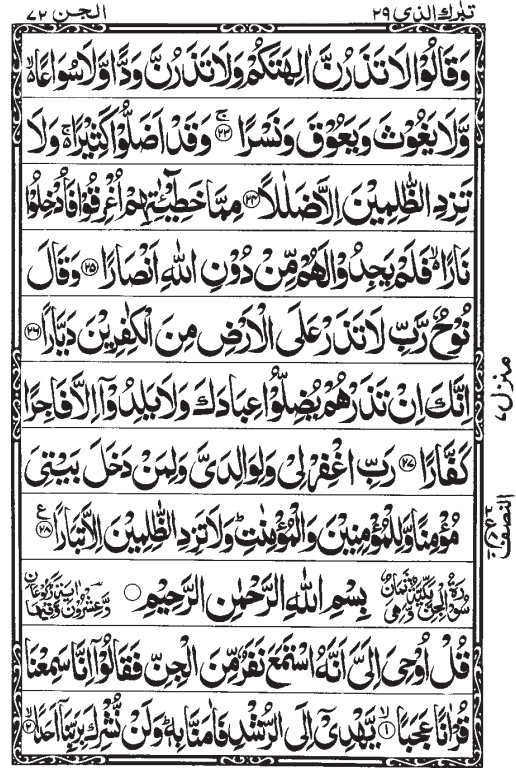 تبرك الذي ٢٩
الجن ٧٢
وَقَالُوْا لَا تَذَرُنَّ اٰلِهَتَكُمْ وَلَا تَذَرُنَّ وَدًّا وَّلَا سُوَاعًا ۙ
وَّلَا يَغُوْثَ وَيَعُوْقَ وَنَسْرًا ۚ ﴿٢٣﴾ وَقَدْ اَضَلُّوْا كَثِيْرًا ۚ وَلَا
تَزِدِ الظّٰلِمِيْنَ اِلَّا ضَلٰلًا ﴿٢٤﴾ مِمَّا خَطِيْٓـٰٔتِهِمْ اُغْرِقُوْا فَاُدْخِلُوْا
نَارًا ۙ فَلَمْ يَجِدُوْا لَهُمْ مِّنْ دُوْنِ اللّٰهِ اَنْصَارًا ﴿٢٥﴾ وَقَالَ
نُوْحٌ رَّبِّ لَا تَذَرْ عَلَى الْاَرْضِ مِنَ الْكٰفِرِيْنَ دَيَّارًا ﴿٢٦﴾
اِنَّكَ اِنْ تَذَرْهُمْ يُضِلُّوْا عِبَادَكَ وَلَا يَلِدُوْٓا اِلَّا فَاجِرًا
كَفَّارًا ﴿٢٧﴾ رَبِّ اغْفِرْ لِيْ وَلِوَالِدَيَّ وَلِمَنْ دَخَلَ بَيْتِيَ
مُؤْمِنًا وَّلِلْمُؤْمِنِيْنَ وَالْمُؤْمِنٰتِ ؕ وَلَا تَزِدِ الظّٰلِمِيْنَ اِلَّا تَبَارًا ﴿٢٨﴾ ع
سُوْرَةُ الْجِنِّ مَكِّيَّةٌ وَّهِيَ ثَمَانٌ
بِسْمِ اللّٰهِ الرَّحْمٰنِ الرَّحِيْمِ
وَّعِشْرُوْنَ اٰيَةً وَّفِيْهَا رُكُوْعَانِ
قُلْ اُوْحِيَ اِلَيَّ اَنَّهُ اسْتَمَعَ نَفَرٌ مِّنَ الْجِنِّ فَقَالُوْٓا اِنَّا سَمِعْنَا
قُرْاٰنًا عَجَبًا ۙ ﴿١﴾ يَّهْدِيْٓ اِلَى الرُّشْدِ فَاٰمَنَّا بِهٖ ؕ وَلَنْ نُّشْرِكَ بِرَبِّنَآ اَحَدًا ۙ ﴿٢﴾
منزل ٧
النصف